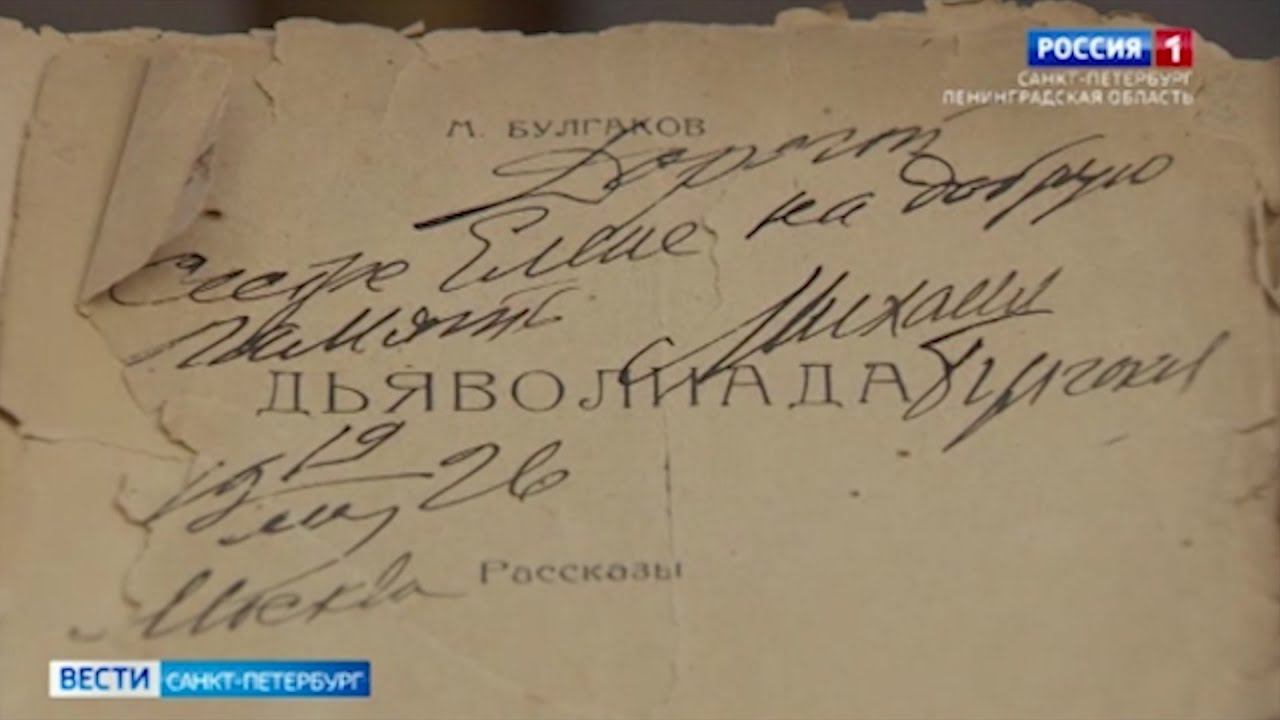 РОССИЯ 1
САНКТ-ПЕТЕРБУРГ
ЛЕНИНГРАДСКАЯ ОБЛАСТЬ
М. БУЛГАКОВ
Дорогой
сестре Елене на добрую
память Михаил
ДЬЯВОЛИАДА Булгаков
19 19/ 26
Москва
Рассказы
ВЕСТИ САНКТ-ПЕТЕРБУРГ